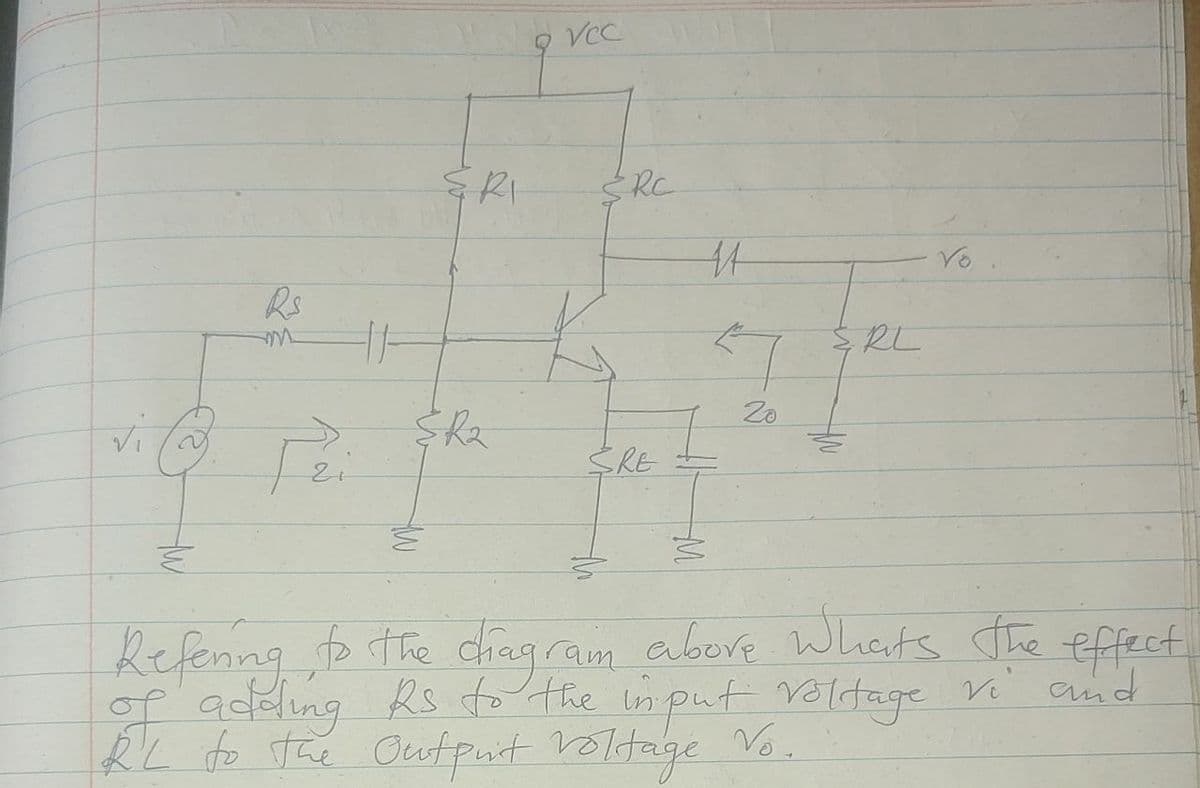 VCC
R1
RC
Vo.
Rs
RL
Zo
Vi
R2
Zi
RE
Refering to the diagram above Whats the effect
of adding Rs to the input voltage Vi and
RL to the Output voltage Vo.